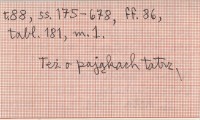 t.88, ss. 175-678, ff. 86,
tabl. 181, m. 1.
Też o pająkach tatrz.